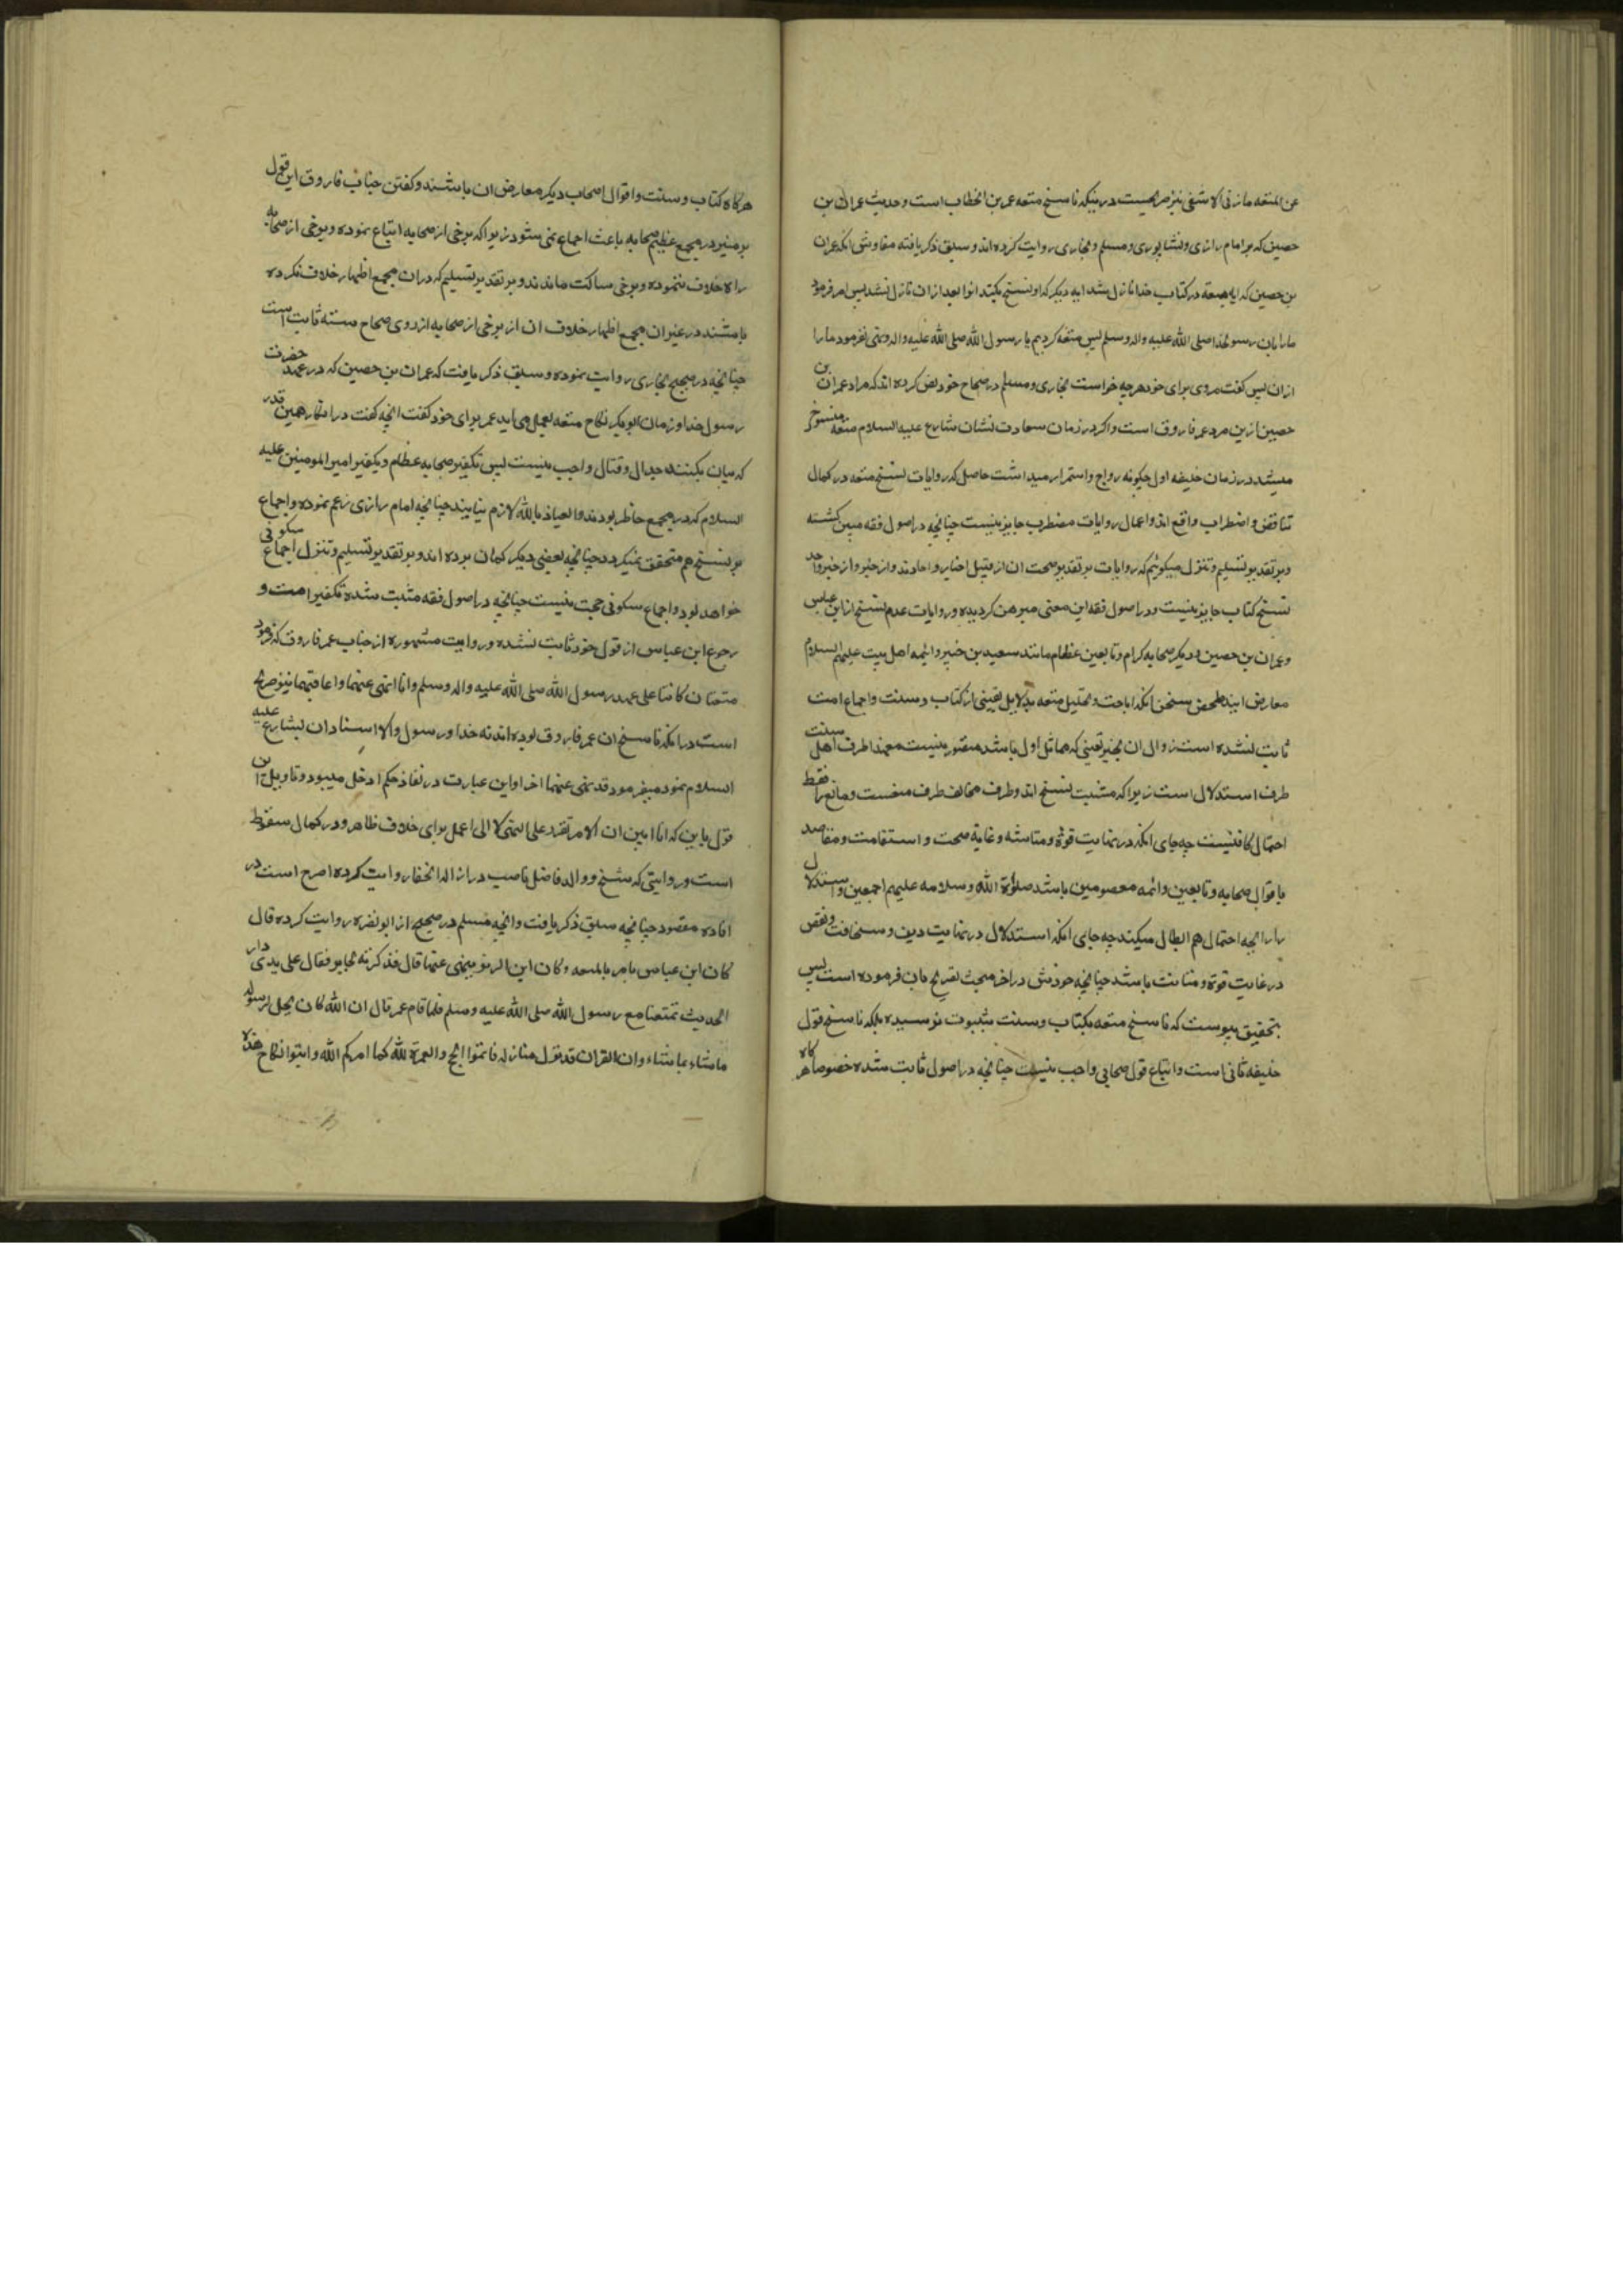 عن المتعه ما زنی الا شقی نیز صریحست در ینکه ناسخ متعه عمر بن الخطاب است و حدیث عمران بن
حصین که مر امام رازی و نشابوری و مسلم و بخاری روایت کرده اند و سبق ذکر یافته مفاوش انکه عمران
بن حصین که ایه متعه در کتاب خدا نازل شد ایه دیکر که او نسخ بکند انوا بعد از ان نازل نشد پس امر فرمود
مارا بان رسولخدا صلی الله علیه واله وسلم پس متعه کردیم با رسول الله صلی الله علیه واله و نهی نفرمود مارا
ازان پس کفت مردی برای خود هرچه خواست بخاری و مسلم در صحاح خود نص کرده اند که مراد عمران بن
حصین ازین مرد عمر فاروق است و اکر در زمان سعادت نشان شارع علیه السلام متعه منسوخ
میشد در زمان خلیفه اول چکونه رواج و استمرار میداشت حاصل که روایات نسخ متعه در کمال
تناقض و اضطراب واقع اند و اعمال روایات مضطرب جایز نیست چنانچه در اصول فقه مبین کشته
و بر تقدیر تسلیم و تنزل میکوئیم که روایات بر تقدیر صحت ان از قبیل اخبار و احادند و از خبر و از خبر واحد
نسخ کتاب جایز نیست و در اصول فقه این معنی مبرهن کردیده و روایات عدم نسخ از ابن عباس
و عمران بن حصین و دیکر صحابه کرام و تابعین عظام مانند سعید بن جبیر و ائمه اهل بیت علیهم السلام
معارض ایند ملخص سخن انکه اباحت و تحلیل متعه بدلایل یقینی از کتاب و سنت و اجماع امت
ثابت شده است زوال ان بخبر یقینی که مماثل اول باشد متصور نیست معهذا طرف اهل سنت
طرف استدلال است زیرا که مثبت نسخ اند و طرف مخالف طرف منعست و مانع را فقط
احتمال کافیست چه جای انکه در نهایت قوة و متانته و غایة صحت و استقامت و مقاصد
باقوال صحابه و تابعین و ائمه معصومین باشد صلوة الله وسلامه علیهم اجمعین و استدلال
را رایحه احتمال هم ابطال میکند چه جای انکه استدلال در نهایت دهن و سخافت و نقض
در غایت قوة و متانت باشد چنانچه خودش در اخر مبحث تصریح بان فرموده است پس
بتحقیق پیوست که ناسخ متعه بکتاب و سنت بثبوت نرسیده بلکه ناسخ قول
خلیفه ثانی است و اتباع قول صحابی واجب نیست چنانچه در اصول ثابت شده خصوصا هر کاه
هرکاه کتاب و سنت و اقوال اصحاب دیکر معارض ان باشند و کفتن جناب فاروق این قول
بر منبر در مجمع عظیم صحابه باعث اجماع نمی شود زیرا که برخی از صحابه اتباع نموده و برخی از صحابه
راه خلاف ننموده و برخی ساکت ماندند و بر تقدیر تسلیم که در ان مجمع اظهار خلاف نکرده
باشند در غیر ان مجمع اظهار خلاف ان از برخی از صحابه از روی صحاح سته ثابت است
چنانچه در صحیح بخاری روایت نموده و سبق ذکر یافت که عمران بن حصین که در عهد حضرت
رسول خدا و زمان ابوبکر نکاح متعه بعمل می اید عمر برای خود کفت انچه کفت در انکار همین قدر
که بیان بکنند جدال و قتال واجب نیست پس تکفیر صحابه عظام و تکفیر امیر المومنین علیه
السلام که در مجمع حاظر بودند والعیاذ بالله لازم نیاید چنانچه امام رازی زعم نموده و اجماع
بر نسخ هم متحقق نمیکردد چنانچه بعضی دیکر کمان برده اند و بر تقدیر تسلیم و تنزل اجماع سکوتی
خواهد بود و اجماع سکوتی حجت نیست چنانچه در اصول فقه مثبت شده تکفیر امت و
رجوع ابن عباس از قول خود ثابت نشده و روایت مشهوره از جناب عمر فاروق که فرمود
متعتان کانتا علی عهد رسول الله صلی الله علیه واله وسلم وانا انهی عنهما واعاقبهما نیز صریح
است در انکه ناسخ ان عمر فاروق بوده اند نه خدا و رسول والا اسناد ان بشارع علیه
السلام نمود میفرمود قد نهی عنهما اخدا و این عبارت در نفاذ حکم ادخل میبود و تاویل این
قول باین که انا ابین ان الامر تقرر علی النهی لا الی اعمل برای خلاف ظاهر و در کمال سقوط
است و روایتی که شیخ و والد فاضل ناصب در ازالة الخفا روایت کرده اصرح است در
افاده مقصود چنانچه سبق ذکر یافت و انچه مسلم در صحیح از ابو نضره روایت کرده قال
کان ابن عباس یامر بالمتعه وکان ابن الزبیر ینهی عنها قال فذکرته لجابر فقال علی یدی دار
الحدیث تمتعنا مع رسول الله صلی الله علیه وسلم فلما قام عمر قال ان الله کان یحل لرسوله
ما شاء بما شاء وان القران قد نزل منازله فاتموا الحج والعمرة لله کما امرکم الله وابتوا نکاح هذه